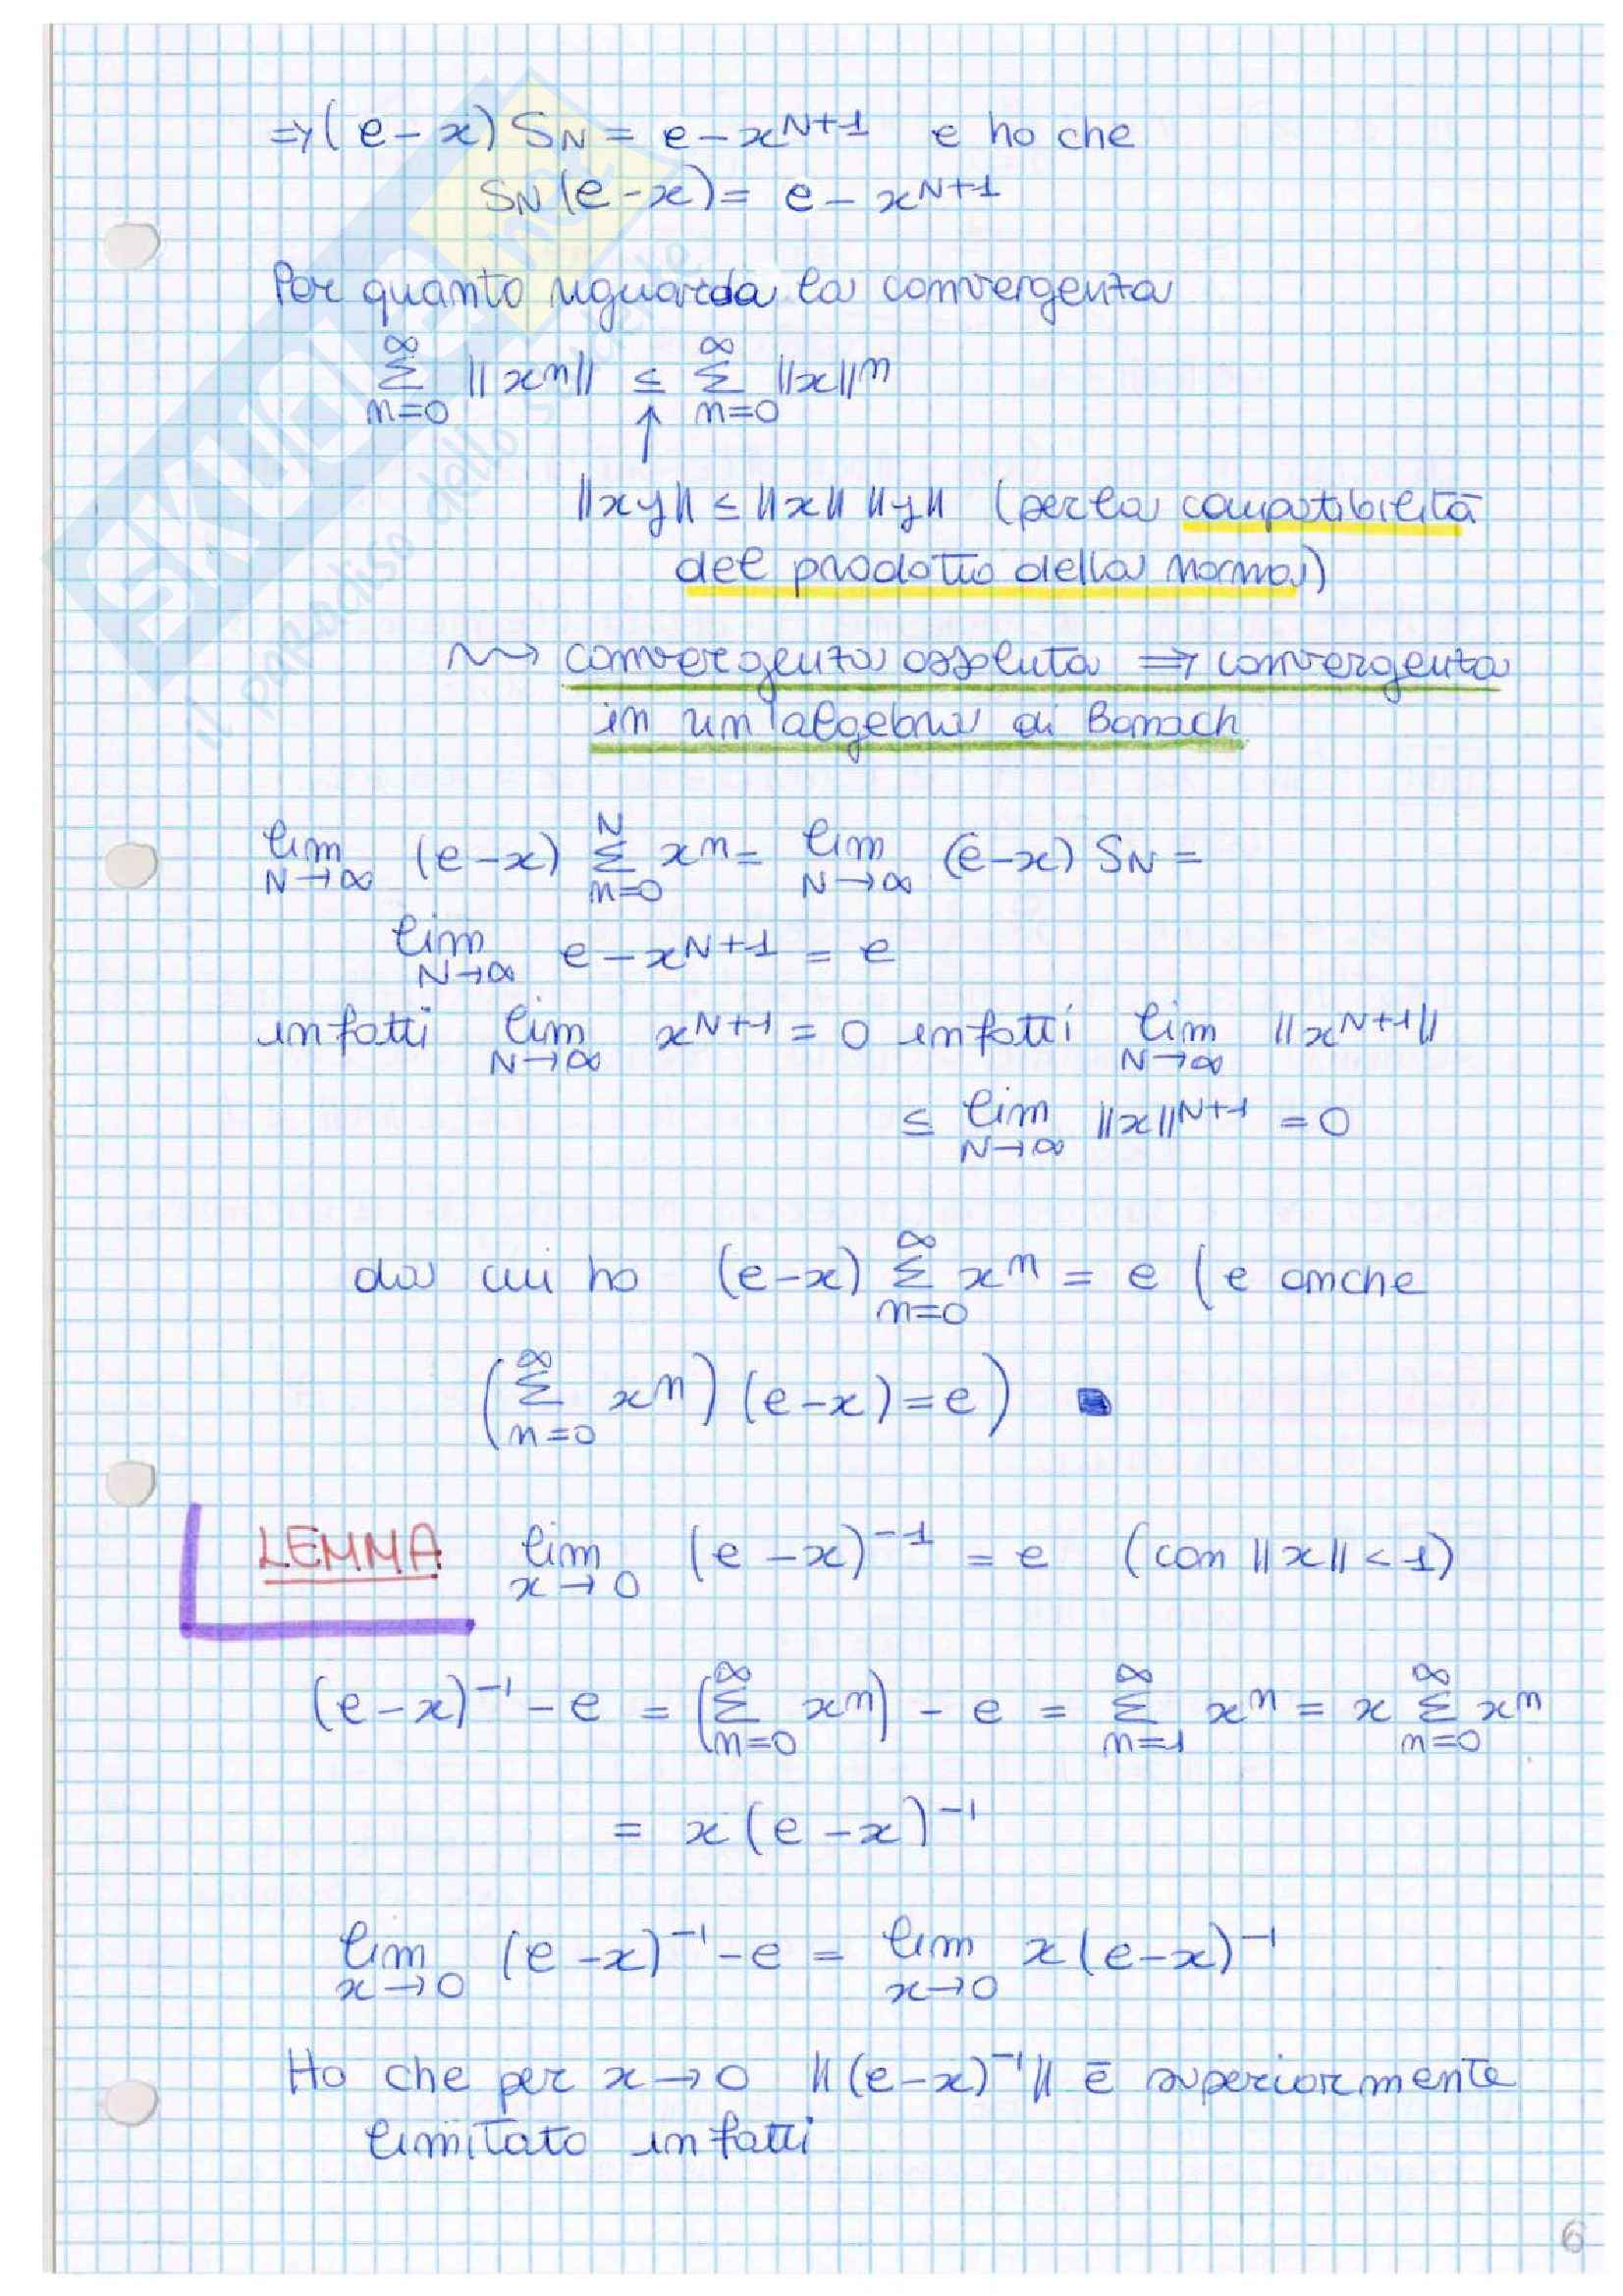 ⇒ (e-x) S_N = e - x^{N+1} e ho che
S_N (e-x) = e - x^{N+1}
Per quanto riguarda la convergenza
∑_{n=0}^{∞} ||x^n|| ≤ ∑_{n=0}^{∞} ||x||^n
↑
||xy|| ≤ ||x|| ||y|| (per la compatibilità
del prodotto della norma)
⇝ convergenza assoluta ⇒ convergenza
in un'algebra di Banach
lim_{N→∞} (e-x) ∑_{n=0}^{N} x^n = lim_{N→∞} (e-x) S_N =
lim_{N→∞} e - x^{N+1} = e
infatti lim_{N→∞} x^{N+1} = 0 infatti lim_{N→∞} ||x^{N+1}||
≤ lim_{N→∞} ||x||^{N+1} = 0
da cui ho (e-x) ∑_{n=0}^{∞} x^n = e (e anche
(∑_{n=0}^{∞} x^n) (e-x) = e) ■
LEMMA lim_{x→0} (e-x)^{-1} = e (con ||x|| < 1)
(e-x)^{-1} - e = (∑_{n=0}^{∞} x^n) - e = ∑_{n=1}^{∞} x^n = x ∑_{n=0}^{∞} x^n
= x (e-x)^{-1}
lim_{x→0} (e-x)^{-1} - e = lim_{x→0} x (e-x)^{-1}
Ho che per x→0 ||(e-x)^{-1}|| è superiormente
limitato infatti
6
SKUOLA.net
il paradiso dello studente